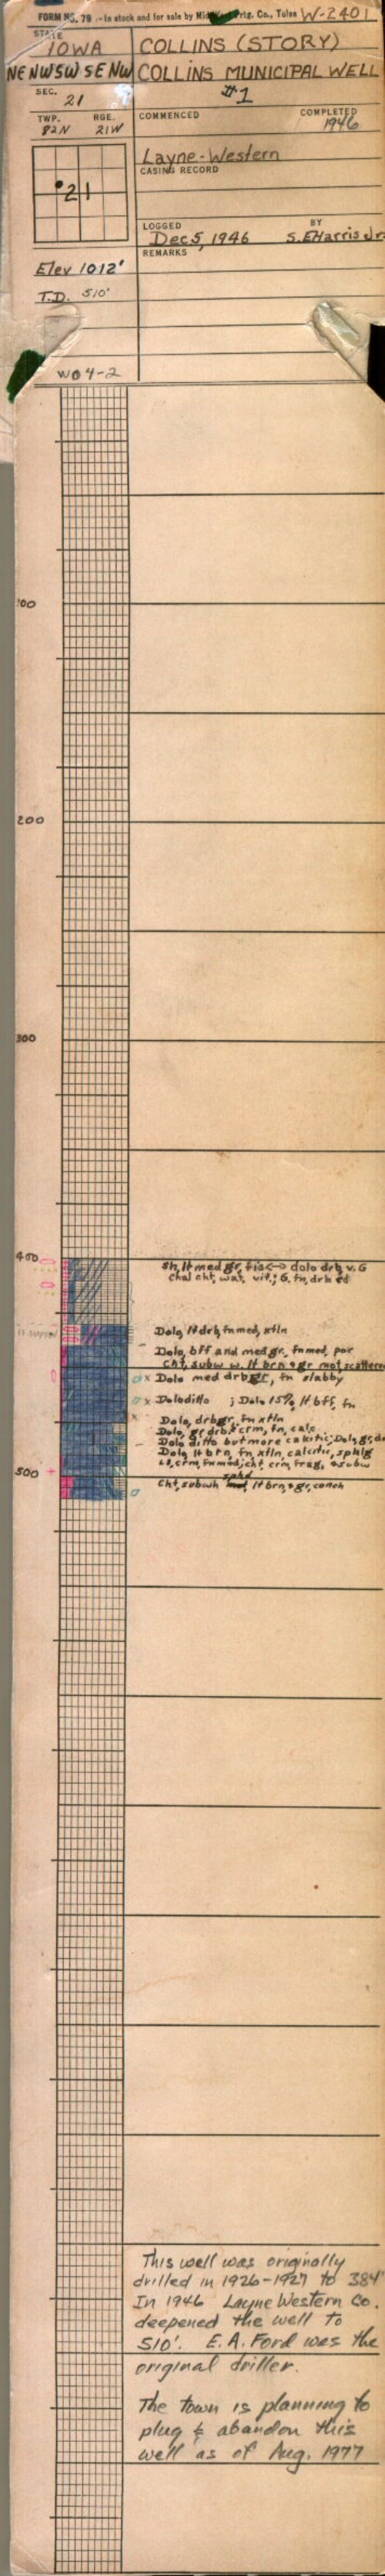 FORM NO. 79 - In stock and for sale by Mid Prtg. Co., Tulsa W-2401
STATE
IOWA
COLLINS (STORY)
NE NW SW SE NW
COLLINS MUNICIPAL WELL
#1
SEC.
21
TWP. RGE.
82N 21W
COMMENCED COMPLETED
1946
Layne-Western
CASING RECORD
21
LOGGED BY
Dec 5, 1946 S.E Harris Jr.
REMARKS
Elev 1012'
T.D. 510'
W04-2
00
200
300
400
Sh, lt med gr, fis <-> dolo drb v. G
Chal cht, wax, vit; G. fn, drk rd
Dolo, lt drb, fn med, xtln
Dolo, bff and med gr. fn med, por
Cht, subw w. lt brn & gr mot scattere
x Dolo med drb gr, fn slabby
x Dolo ditto ; Dolo 15% lt bff, fn
Dolo, drb gr, fn xtln
Dolo, gr drb & crm, fn, calc
Dolo ditto but more calcitic; Dolo, gr, d
Dolo lt brn, fn, xtln, calcitic, sphlg
Ls, crm, fn med; cht, crm, frag, subw
500
sphd
Cht, subwh mot, lt brn, & gr, conch
This well was originally
drilled in 1926-1927 to 384'
In 1946 Layne Western Co.
deepened the well to
510'. E.A. Ford was the
original driller.
The town is planning to
plug & abandon this
well as of Aug. 1977